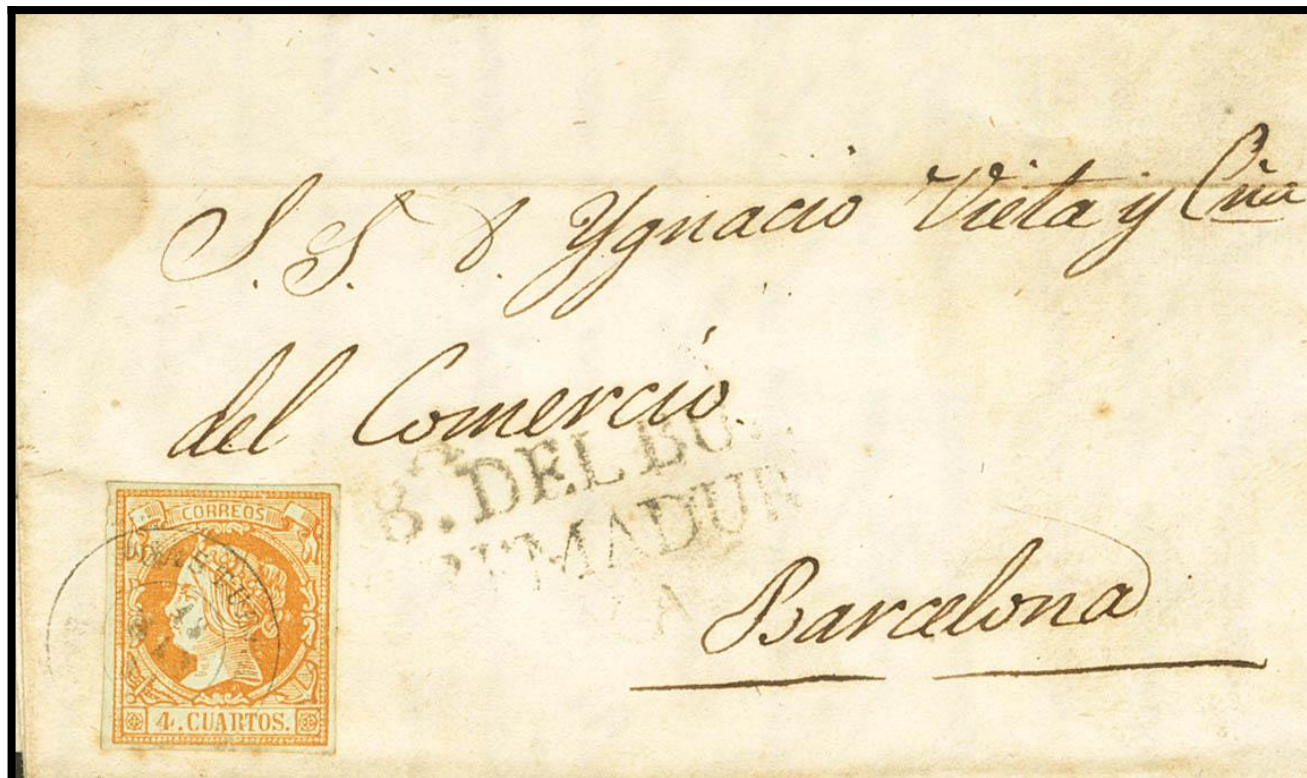 S. S. D. Ygnacio Vieta y Cña
del Comercio.
DEL BU
MADUR
A
Barcelona
CORREOS
4. CUARTOS.